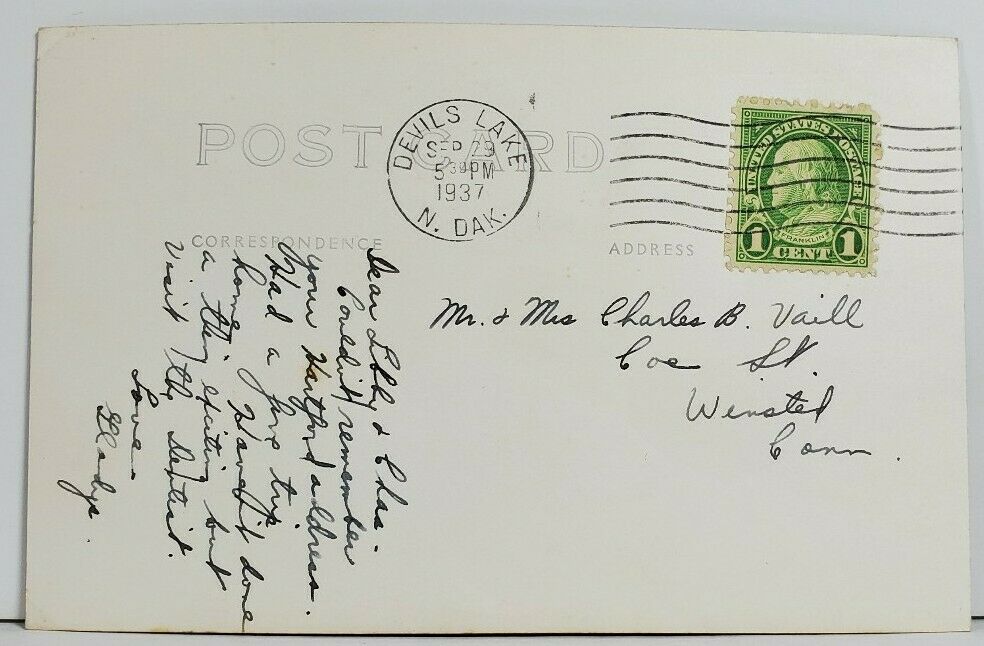 POST CARD
DEVILS LAKE
SEP 29
5 30 PM
1937
N. DAK.
UNITED STATES POSTAGE
FRANKLIN
1 CENT 1
CORRESPONDENCE
ADDRESS
Dear Libby & Chas -
Couldn't remember
your Hartford address.
Had a fine trip
home. Haven't done
a thing exciting but
visit the dentist.
Love -
Gladys.
Mr. & Mrs Charles B. Vaill
Coe St.
Winsted
Conn.